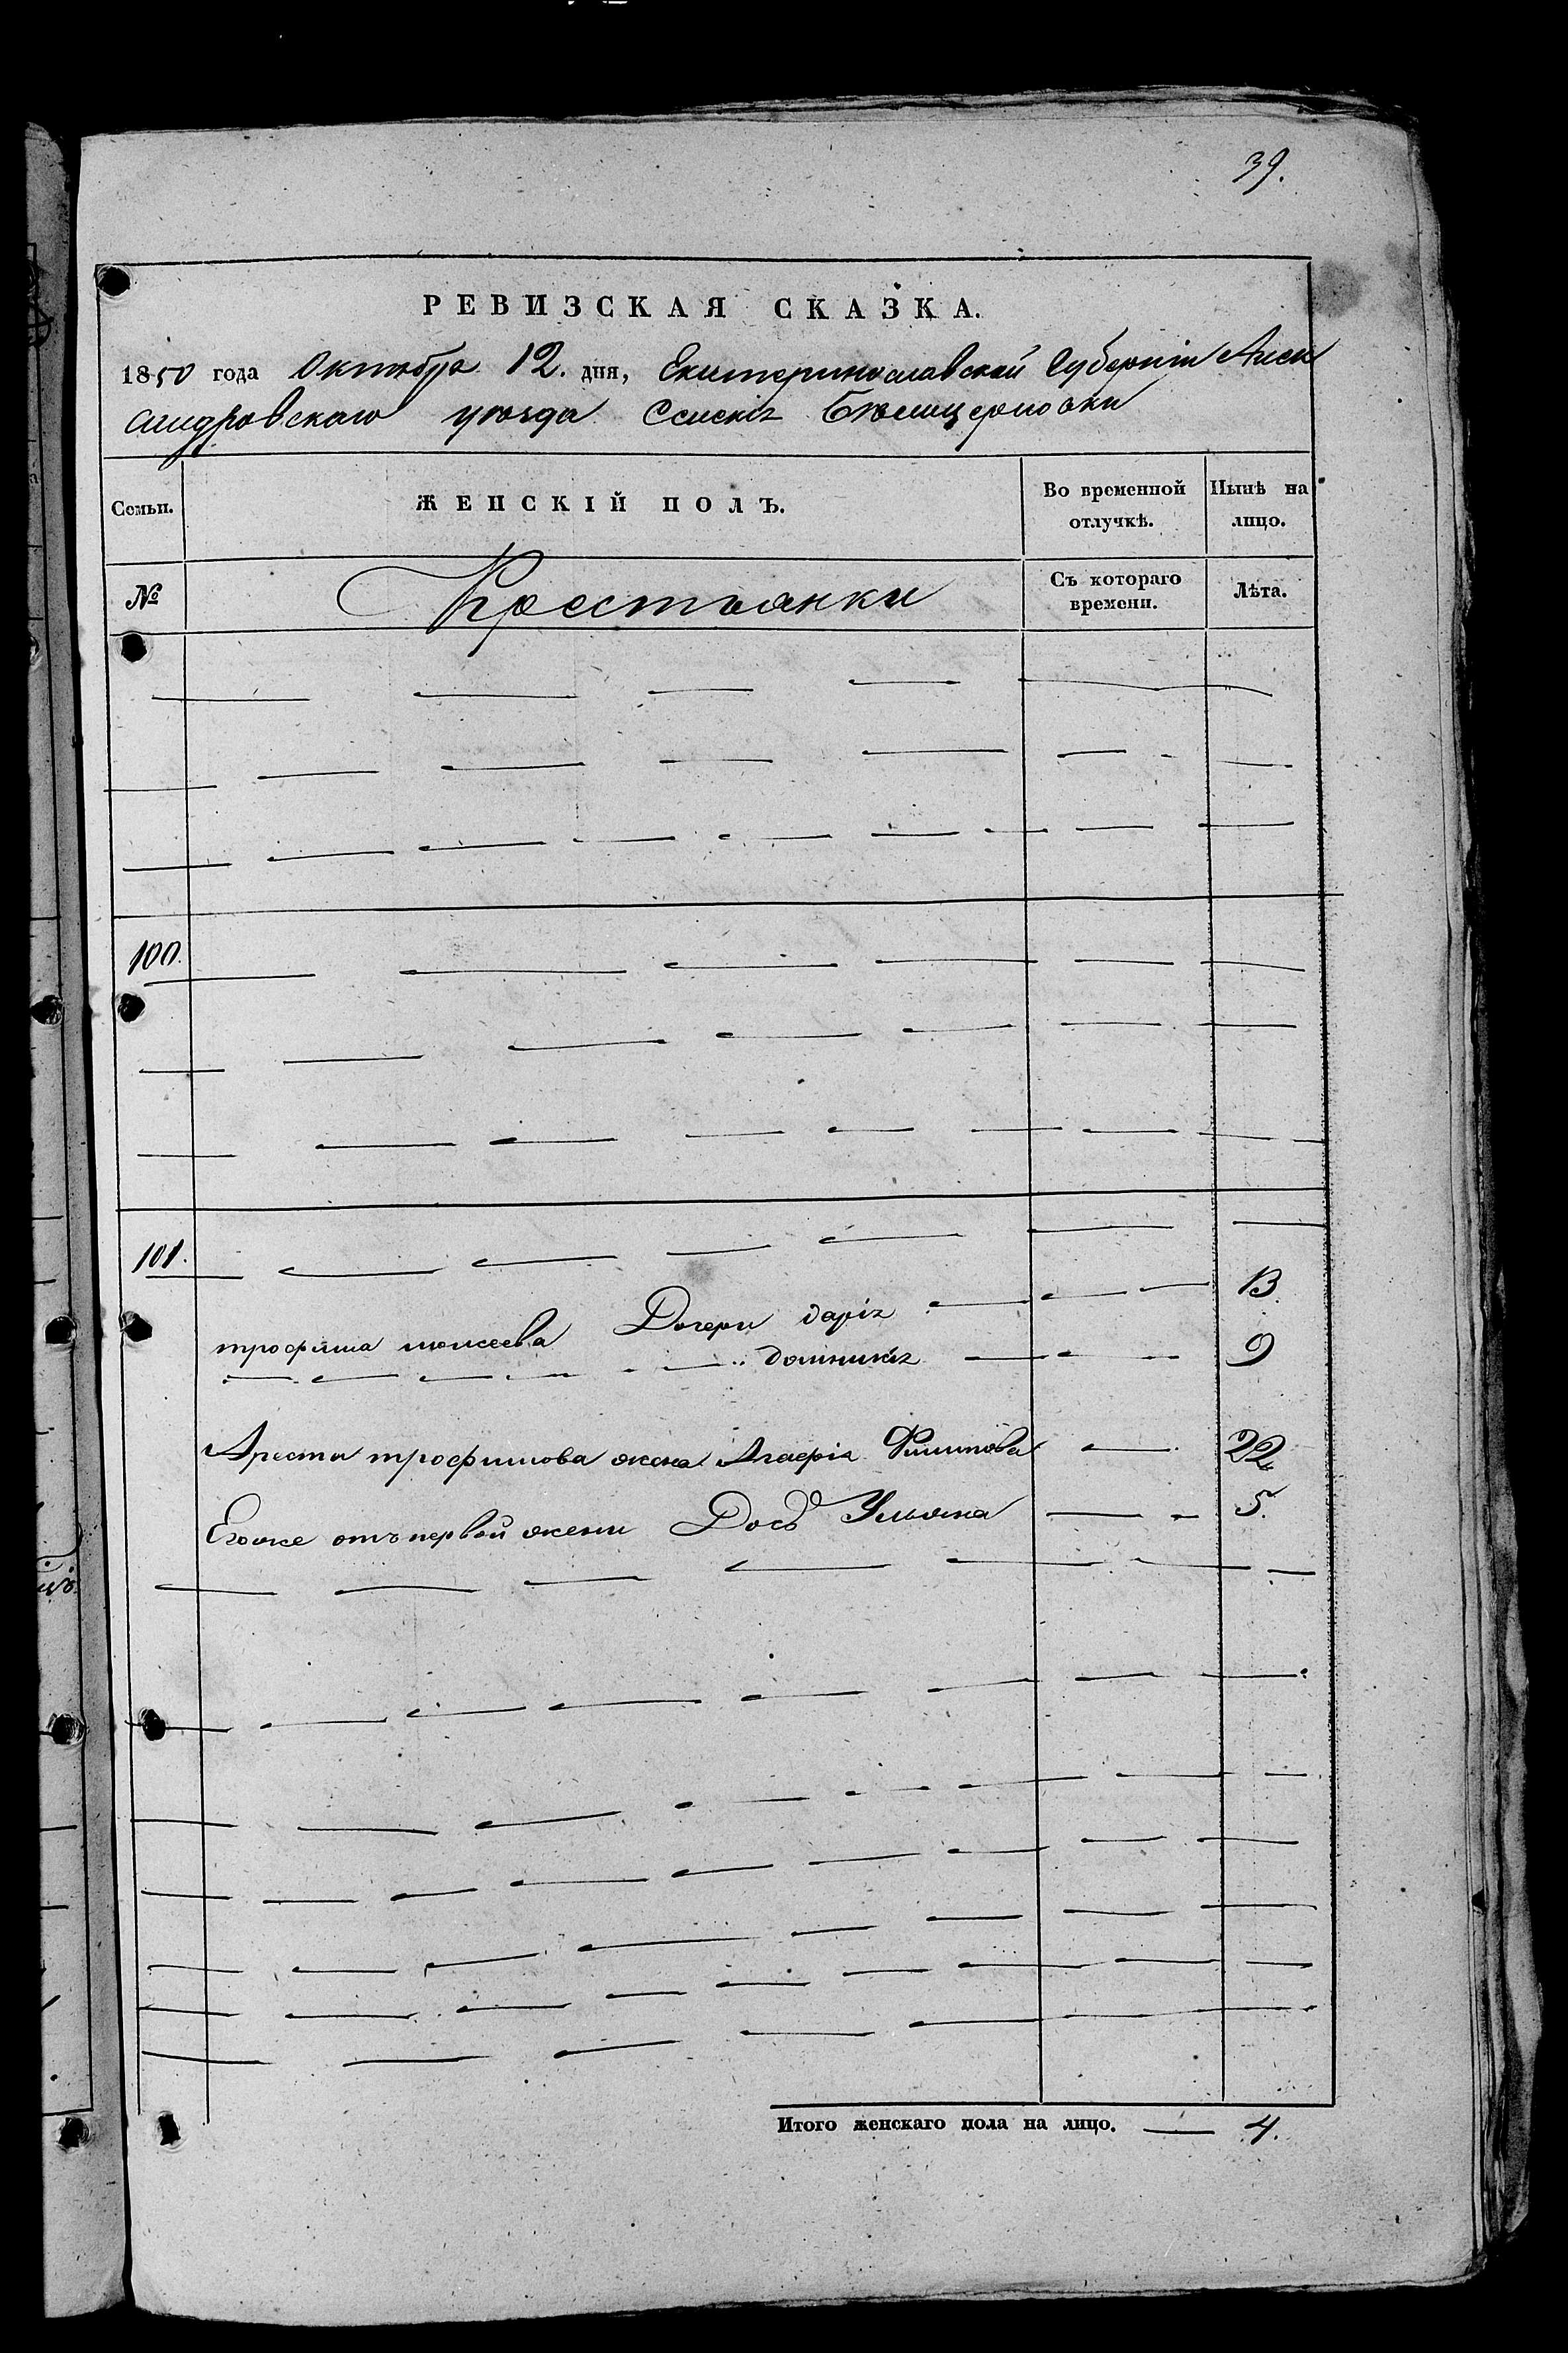 39.
РЕВИЗСКАЯ СКАЗКА.
1850 года Октября 12. дня, Екатеринославской Губерніи Алек
сандровскаго уѣзда
Семьи. ЖЕНСКІЙ ПОЛЪ. Во временной отлучкѣ. Нынѣ на лицо.
№ Крестьянки Съ котораго времени. Лѣта.
100.
101.
трофима моисеева Дочери дарія 13
домникія 9
трофимова жена Агафія Филипова 22
Егоже отъ первой жены Дочь Ульяна 5.
Итого женскаго пола на лицо. 4.